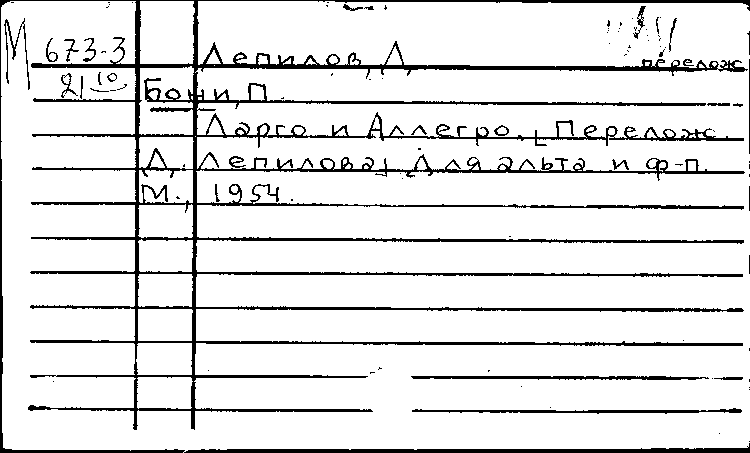 М 673-3 Лепилов, Д.
перелож.
21 10
Бони, П.
Ларго и Аллегро. [Перелож.
Д. Лепилова] Для альта и ф-п.
М., 1954.